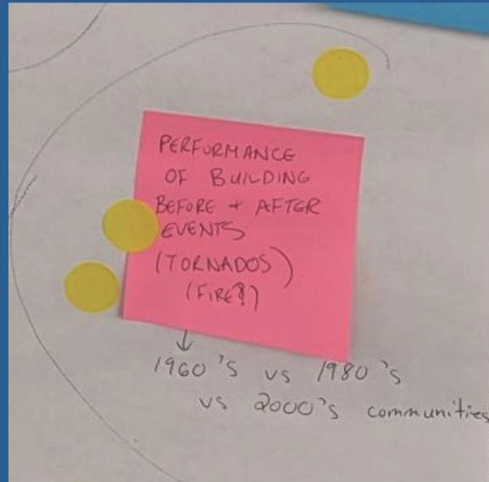 PERFORMANCE
OF BUILDING
BEFORE + AFTER
EVENTS
(TORNADOS)
(FIRE?)
↓
1960's vs 1980's
vs 2000's communities